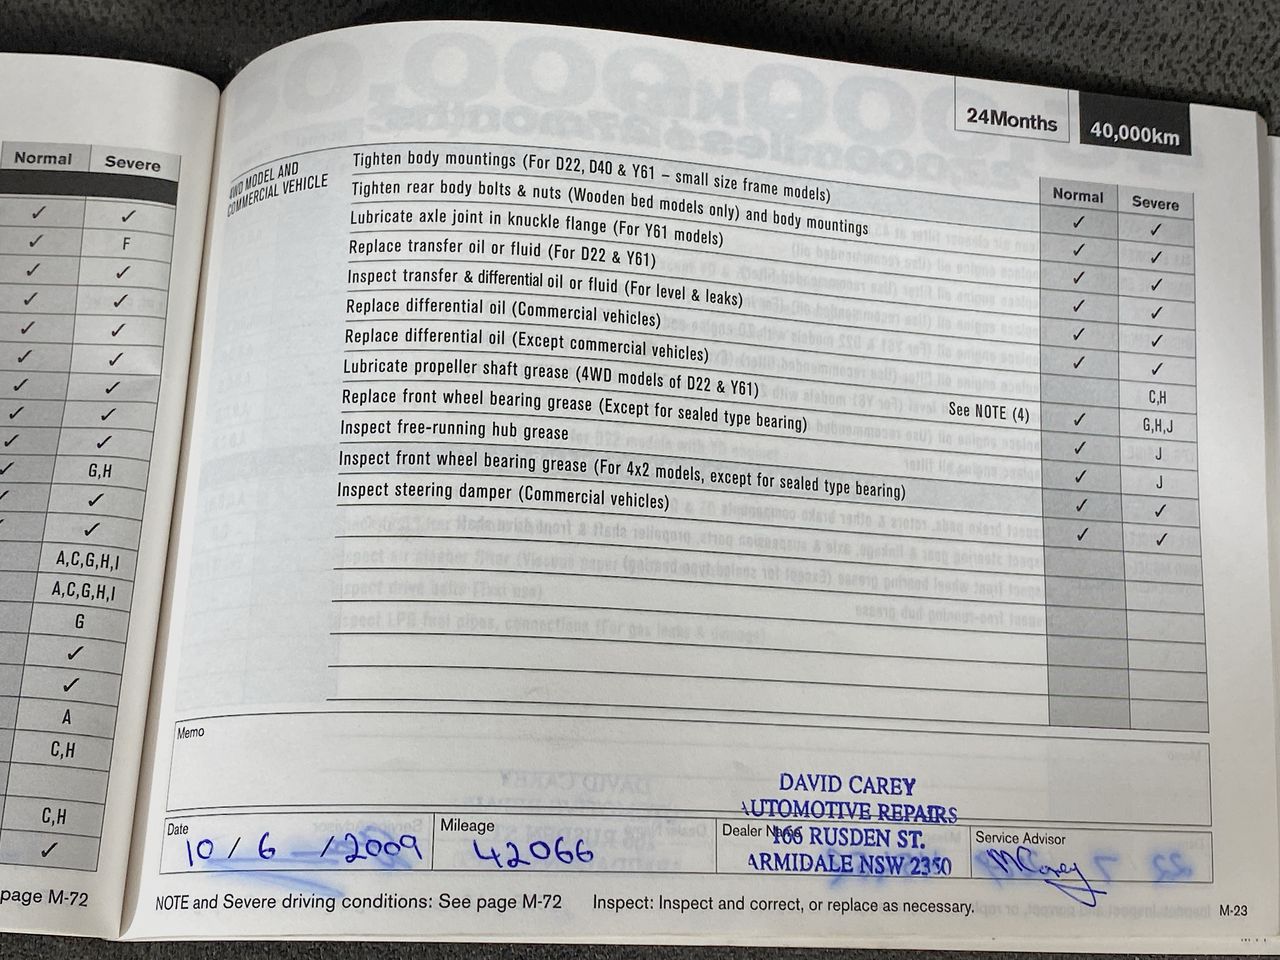 Normal Severe
✓ ✓
✓ F
✓ ✓
✓ ✓
✓ ✓
✓ ✓
✓ ✓
✓ ✓
✓ ✓
✓ G,H
✓ ✓
✓ ✓
A,C,G,H,I
A,C,G,H,I
G
✓
✓
A
C,H
C,H
✓
page M-72
24Months 40,000km
4WD MODEL AND
COMMERCIAL VEHICLE
Normal Severe
Tighten body mountings (For D22, D40 & Y61 – small size frame models) ✓ ✓
Tighten rear body bolts & nuts (Wooden bed models only) and body mountings ✓ ✓
Lubricate axle joint in knuckle flange (For Y61 models) ✓ ✓
Replace transfer oil or fluid (For D22 & Y61) ✓ ✓
Inspect transfer & differential oil or fluid (For level & leaks) ✓ ✓
Replace differential oil (Commercial vehicles) ✓ ✓
Replace differential oil (Except commercial vehicles) C,H
Lubricate propeller shaft grease (4WD models of D22 & Y61) See NOTE (4) ✓ G,H,J
Replace front wheel bearing grease (Except for sealed type bearing) ✓ J
Inspect free-running hub grease ✓ J
Inspect front wheel bearing grease (For 4x2 models, except for sealed type bearing) ✓ ✓
Inspect steering damper (Commercial vehicles) ✓ ✓
Memo
DAVID CAREY
AUTOMOTIVE REPAIRS
166 RUSDEN ST.
ARMIDALE NSW 2350
Date
10 / 6 / 2009
Mileage
42066
Dealer Name
Service Advisor
MCarey
NOTE and Severe driving conditions: See page M-72 Inspect: Inspect and correct, or replace as necessary.
M-23